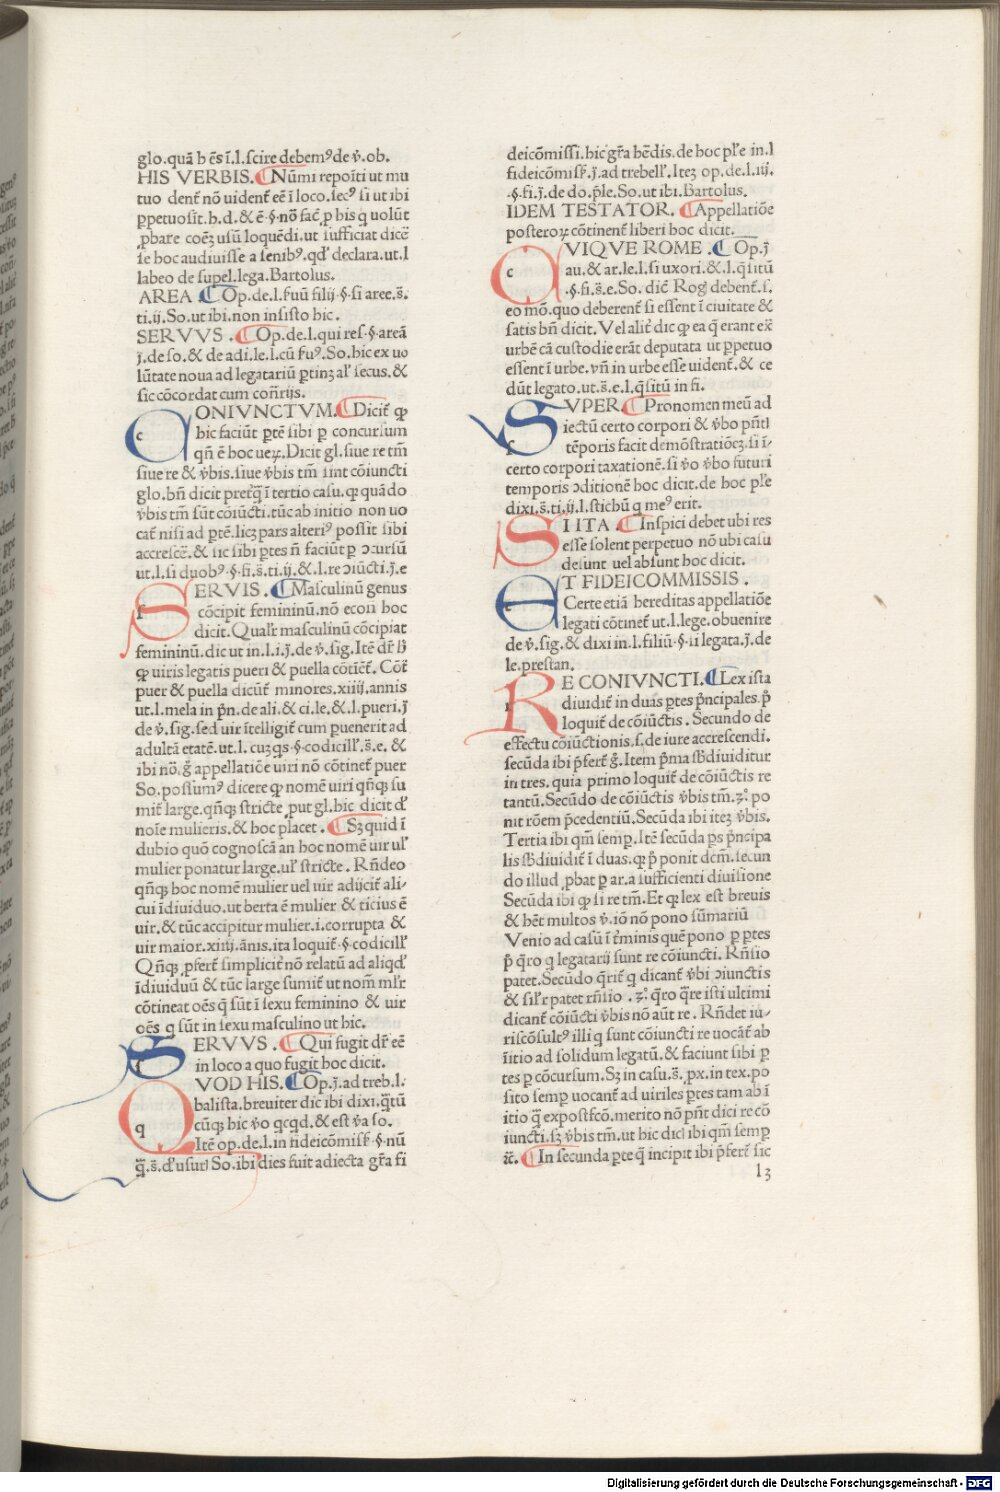 glo.quã h ẽs ĩ.l.scire debemꝰ de v̾.ob.
HIS VERBIS. ¶ Nũmi repoĩti ut mu
tuo dent̃ nõ uident̃ eẽ ĩ loco.secꝰ si ut ibi
ꝑpetuo sit.h.d.& ẽ.§.nõ fac̃ ꝑ bis q uolũt
ꝓbare coẽꝫ usũ loquẽdi.ut sufficiat dicẽ
se hoc audiuisse a senibꝰ.qđ declara.ut.l
labeo de supel.lega.Bartolus.
AREA ¶ Op.de.l.fuũ filij.§.si aree.s̃.
ti.ij.So.ut ibi.non insisto hic.
SERVVS . ¶ Op.de.l.qui res.§.areã
j̃.de so.& de adi.le.l.cũ fuꝰ.So.hic ex uo
lũtate noua ad legatariũ ꝑtinꝫ al' secus.&
sic cõcordat cum cõr̃ijs.
c ONIVNCTVM. ¶ Dicit̃ ꝙ
hic faciũt ꝑtẽ sibi ꝑ concursum
qñ ẽ hoc ueꝝ.Dicit gl.siue re tm̃
siue re & v̾bis.siue v̾bis tm̃ sint cõiuncti
glo.bñ dicit preter̃q̃ ĩ tertio casu.ꝙ quãdo
v̾bis tm̃ sũt cõiũcti.tũc ab initio non uo
cat̃ nisi ad ꝑtẽ.licꝫ pars alteriꝰ possit sibi
accrescẽ.& sic sibi ꝑtes ñ faciũt ꝑ ↄcursũ
ut.l.si duobꝰ.§.fi.s̃.ti.ij.& .l.re ↄiũcti.j̃.e
s ERVIS . ¶ Masculinũ genus
cõcipit femininũ.nõ econ̄ hoc
dicit.Qualr̃ masculinũ cõcipiat
femininũ.dic ut in.l.i.j̃.de v̾.sig.Itẽ dr̃ h̃
ꝙ uiris legatis pueri & puella cõtiet̃. Cõt̃
puer & puella dicũt̃ minores.xiiij.annis
ut.l.mela in p̃n.de ali.& ci.le.& .l.pueri.j̃
de v̾.sig.sed uir ĩtelligit̃ cum puenerit ad
adultã etatẽ.ut.l.cuꝫ qs.§.codicill'.s̃.e. &
ibi nõ.g̃ appellatiõe uiri nõ cõtinet̃ puer
So.possumꝰ dicere ꝙ nomẽ uiri qñqꝫ su
mit̃ large.qñqꝫ stricte ꝓut gl.hic dicit d'
noĩe mulieris.& hoc placet . ¶ Sꝫ quid ĩ
dubio quõ cognoscã an hoc nomẽ uir ul'
mulier ponatur large.ul' stricte . Rñdeo
qñqꝫ hoc nomẽ mulier uel uir adijcit̃ ali⸗
cui ĩdiuiduo.ut berta ẽ mulier & ticius ẽ
uir.& tũc accipitur mulier.i.corrupta &
uir maior.xiiij.ãnis.ita loquit̃.§.codicill'
Qñqꝫ ꝓfert̃ simplicit̃ nõ relatũ ad aliqđ
ĩdiuiduũ & tũc large sumit̃ ut nom̃ mlr̃
cõtineat oẽs q̃ sũt ĩ sexu feminino & uir
oẽs q sũt in sexu masculino ut hic.
s ERVVS . ¶ Qui fugit dr̃ eẽ
in loco a quo fugit hoc dicit.
q VOD HIS. ¶ Op.j̃.ad treb.l.
balista.breuiter dic ibi dixi.q̃tũ
cũqꝫ hic v̾o qcqd.& est v̾a so.
Itẽ op.de.l.in fideicõmiss̃.§.nũ
q̃.s̃.d'usur̃ So.ibi dies fuit adiecta gr̃a fi
deicõmissi.hic gr̃a hẽdis.de hoc pl'e in.l
fideicõmiss̃.j̃.ad trebell'.Iteꝫ op.de.l.iij.
.§.fi.j̃.de do.p̃le.So.ut ibi.Bartolus.
IDEM TESTATOR. ¶ Appellatiõe
posteroꝝ cõtinent̃ liberi hoc dicit.
c VIQVE ROME . ¶ Op.j̃
au.& ar.le.l.si uxori.& .l.q̃sitũ
.§.fi.s̃.e.So. dic̃ Rog̃ debent̃.s.
eo mõ.quo deberent̃ si essent ĩ ciuitate &
satis bñ dicit. Vel alit̃ dic ꝙ ea q̃ erant ex̃
urbẽ cã custodie erãt deputata ut ꝑpetuo
essent ĩ urbe.vñ in urbe esse uident̃.& ce
dũt legato.ut.s̃.e.l.q̃sitũ in fi.
s VPER. ¶ Pronomen meũ ad
iectũ certo corpori & v̾bo p̃ntl
tẽporis facit demõstratiõeꝫ.si ĩ⸗
certo corpori taxationẽ.si v̾o v̾bo futuri
temporis ↄditionẽ hoc dicit.de hoc pl'e
dixi.s̃.ti.ij.l.stichũ q meꝰ erit.
s I ITA . ¶ Inspici debet ubi res
esse solent perpetuo nõ ubi casu
desunt uel absunt hoc dicit.
e T FIDEICOMMISSIS .
Certe etiã hereditas appellatiõe
legati cõtinet̃ ut.l.lege.obuenire
de v̾.sig.& dixi in.l.filiũ.§.ii legata.j̃.de
le.prestan.
r E CONIVNCTI. ¶ Lex ista
diuidit̃ in duas ꝑtes p̃ncipales.p̃
loquit̃ de cõiũctis . Secundo de
effectu cõiũctionis.s.de iure accrescendi.
secũda ibi p̃fert̃ g̃.Item p̃ma sb̃diuiditur
in tres. quia primo loquit̃ de cõiũctis re
tantũ.Secũdo de cõiũctis v̾bis tm̃.3°.po
nit rõem p̃cedentiũ.Secũda ibi iteꝫ v̾bis.
Tertia ibi qm̃ semꝑ.Itẽ secũda ps p̃ncipa
lis sb̃diuidit̃ ĩ duas.ꝙ p̃ ponit dcm̃.secun
do illud ꝓbat ꝑ ar.a sufficienti diuisione
Secũda ibi ꝙ si re tm̃.Et ꝙ lex est breuis
& hẽt multos v̾.iõ nõ pono sũmariũ
Venio ad casũ ĩ t̃minis quẽ pono ꝑ ptes
p̃ q̃ro q legatarij sunt re cõiuncti. Rñsio
patet.Secũdo q̃rit̃ q dicant̃ v̾bi ↄiunctis
& sil'r patet rñsio . 3°. q̃ro q̃re isti ultimi
dicant̃ cõiũcti v̾bis nõ aũt re . Rñdet iu⸗
riscõsultꝰ illi q sunt cõiuncti re uocãt̃ ab
ĩitio ad solidum legatũ.& faciunt sibi ꝑ
tes ꝑ cõcursum.Sꝫ in casu.s̃.ꝓx.in tex.po
sito semꝑ uocant̃ ad uiriles ꝑtes tam ab ĩ
itio q̃ expostfcõ.merito nõ pñt dici re cõ
iuncti.sꝫ v̾bis tm̃.ut hic dicl ibi qm̃ semꝑ
ĩc̃. ¶ In secunda ꝑte q̃ incipit ibi p̃fert̃ sic
l3
Digitalisierung gefördert durch die Deutsche Forschungsgemeinschaft - DFG